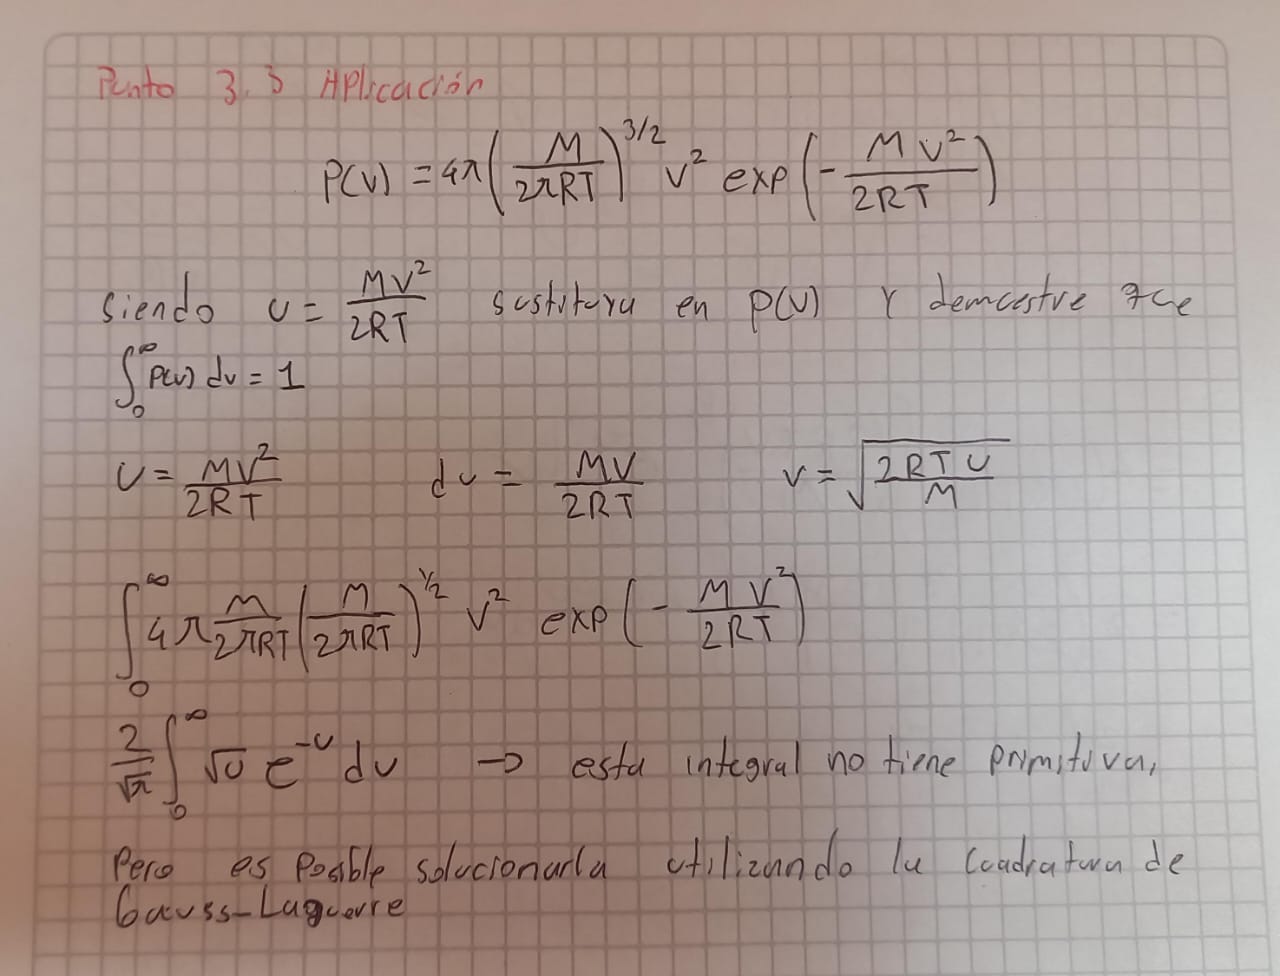 Punto 3.3 Aplicación
P(v) = 4π(M/2πRT)^3/2 v² exp(-Mv²/2RT)
Siendo u = Mv²/2RT sustituya en P(v) y demuestre que
∫₀^∞ P(v) dv = 1
u = Mv²/2RT du = Mv/2RT v = √(2RTu/M)
∫₀^∞ 4π M/2πRT (M/2πRT)^1/2 v² exp(-Mv²/2RT)
2/√π ∫₀^∞ √u e^-u du → esta integral no tiene primitiva,
Pero es posible solucionarla utilizando la cuadratura de
Gauss-Laguerre